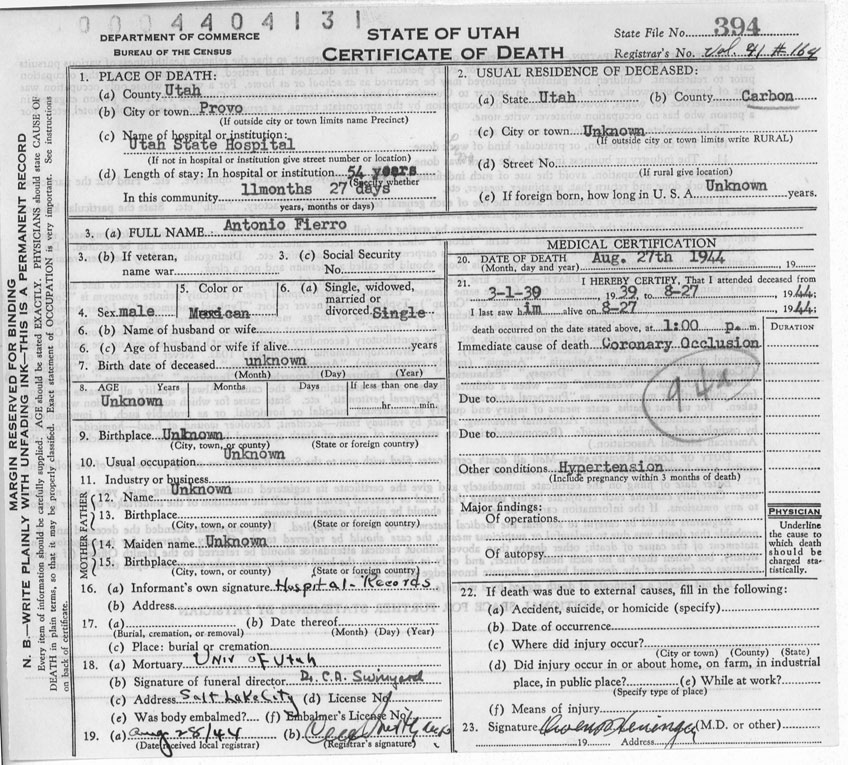 0004404131
DEPARTMENT OF COMMERCE
BUREAU OF THE CENSUS
STATE OF UTAH
CERTIFICATE OF DEATH
State File No. 394
Registrar's No. Vol. 41 # 164
MARGIN RESERVED FOR BINDING
N. B.—WRITE PLAINLY WITH UNFADING INK—THIS IS A PERMANENT RECORD
Every item of information should be carefully supplied. AGE should be stated EXACTLY. PHYSICIANS should state CAUSE OF
DEATH in plain terms, so that it may be properly classified. Exact statement of OCCUPATION is very important. See instructions
on back of certificate.
1. PLACE OF DEATH:
(a) County Utah
(b) City or town Provo
(If outside city or town limits name Precinct)
(c) Name of hospital or institution:
Utah State Hospital
(If not in hospital or institution give street number or location)
(d) Length of stay: In hospital or institution 54 years
(Specify whether
In this community 11months 27 days
years, months or days)
2. USUAL RESIDENCE OF DECEASED:
(a) State Utah (b) County Carbon
(c) City or town Unknown
(If outside city or town limits write RURAL)
(d) Street No.
(If rural give location)
(e) If foreign born, how long in U. S. A. Unknown years.
3. (a) FULL NAME Antonio Fierro
3. (b) If veteran,
name war
3. (c) Social Security
No.
4. Sex male
5. Color or
Mexican
6. (a) Single, widowed,
married or
divorced Single
6. (b) Name of husband or wife
6. (c) Age of husband or wife if alive years
7. Birth date of deceased unknown
(Month) (Day) (Year)
8. AGE Years Months Days If less than one day
Unknown hr. min.
9. Birthplace Unknown
(City, town, or county) (State or foreign country)
10. Usual occupation Unknown
11. Industry or business
FATHER
12. Name Unknown
13. Birthplace
(City, town, or county) (State or foreign country)
MOTHER
14. Maiden name Unknown
15. Birthplace
(City, town, or county) (State or foreign country)
16. (a) Informant's own signature Hospital - Records
(b) Address
17. (a) (b) Date thereof
(Burial, cremation, or removal) (Month) (Day) (Year)
(c) Place: burial or cremation
18. (a) Mortuary Univ of Utah
(b) Signature of funeral director Dr. C.A. Swinyard
(c) Address Salt Lake City (d) License No
(e) Was body embalmed? (f) Embalmer's License No
19. (a) Aug 28/44 (b)
(Date received local registrar) (Registrar's signature)
MEDICAL CERTIFICATION
20. DATE OF DEATH Aug. 27th 1944
(Month, day and year) 19
21. I HEREBY CERTIFY, That I attended deceased from
3-1-39, 1939 to 8-27 1944;
I last saw him alive on 8-27 1944;
death occurred on the date stated above, at 1:00 p. m.
DURATION
Immediate cause of death Coronary Occlusion
94a
Due to
Due to
Other conditions Hypertension
(Include pregnancy within 3 months of death)
Major findings:
Of operations
Of autopsy
PHYSICIAN
Underline
the cause to
which death
should be
charged sta-
tistically.
22. If death was due to external causes, fill in the following:
(a) Accident, suicide, or homicide (specify)
(b) Date of occurrence
(c) Where did injury occur?
(City or town) (County) (State)
(d) Did injury occur in or about home, on farm, in industrial
place, in public place? (e) While at work?
(Specify type of place)
(f) Means of injury
23. Signature (M.D. or other)
19 Address